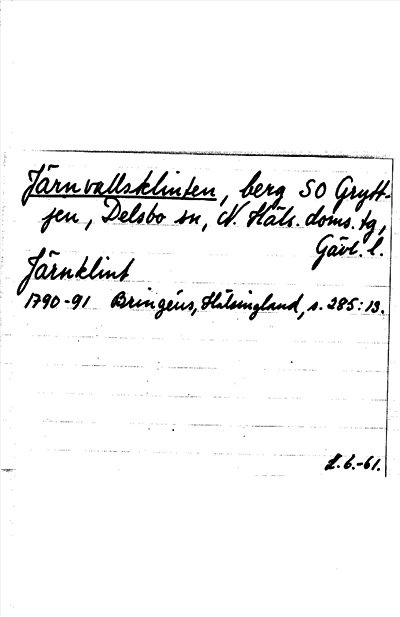 Järnvallsklinten, berg SO Grytt-
jen, Delsbo sn, N. Häls. doms. tg,
Gävl. l.
Järnklint
1790-91 Bringéus, Hälsingland, s. 285:13.
2.6.-61.